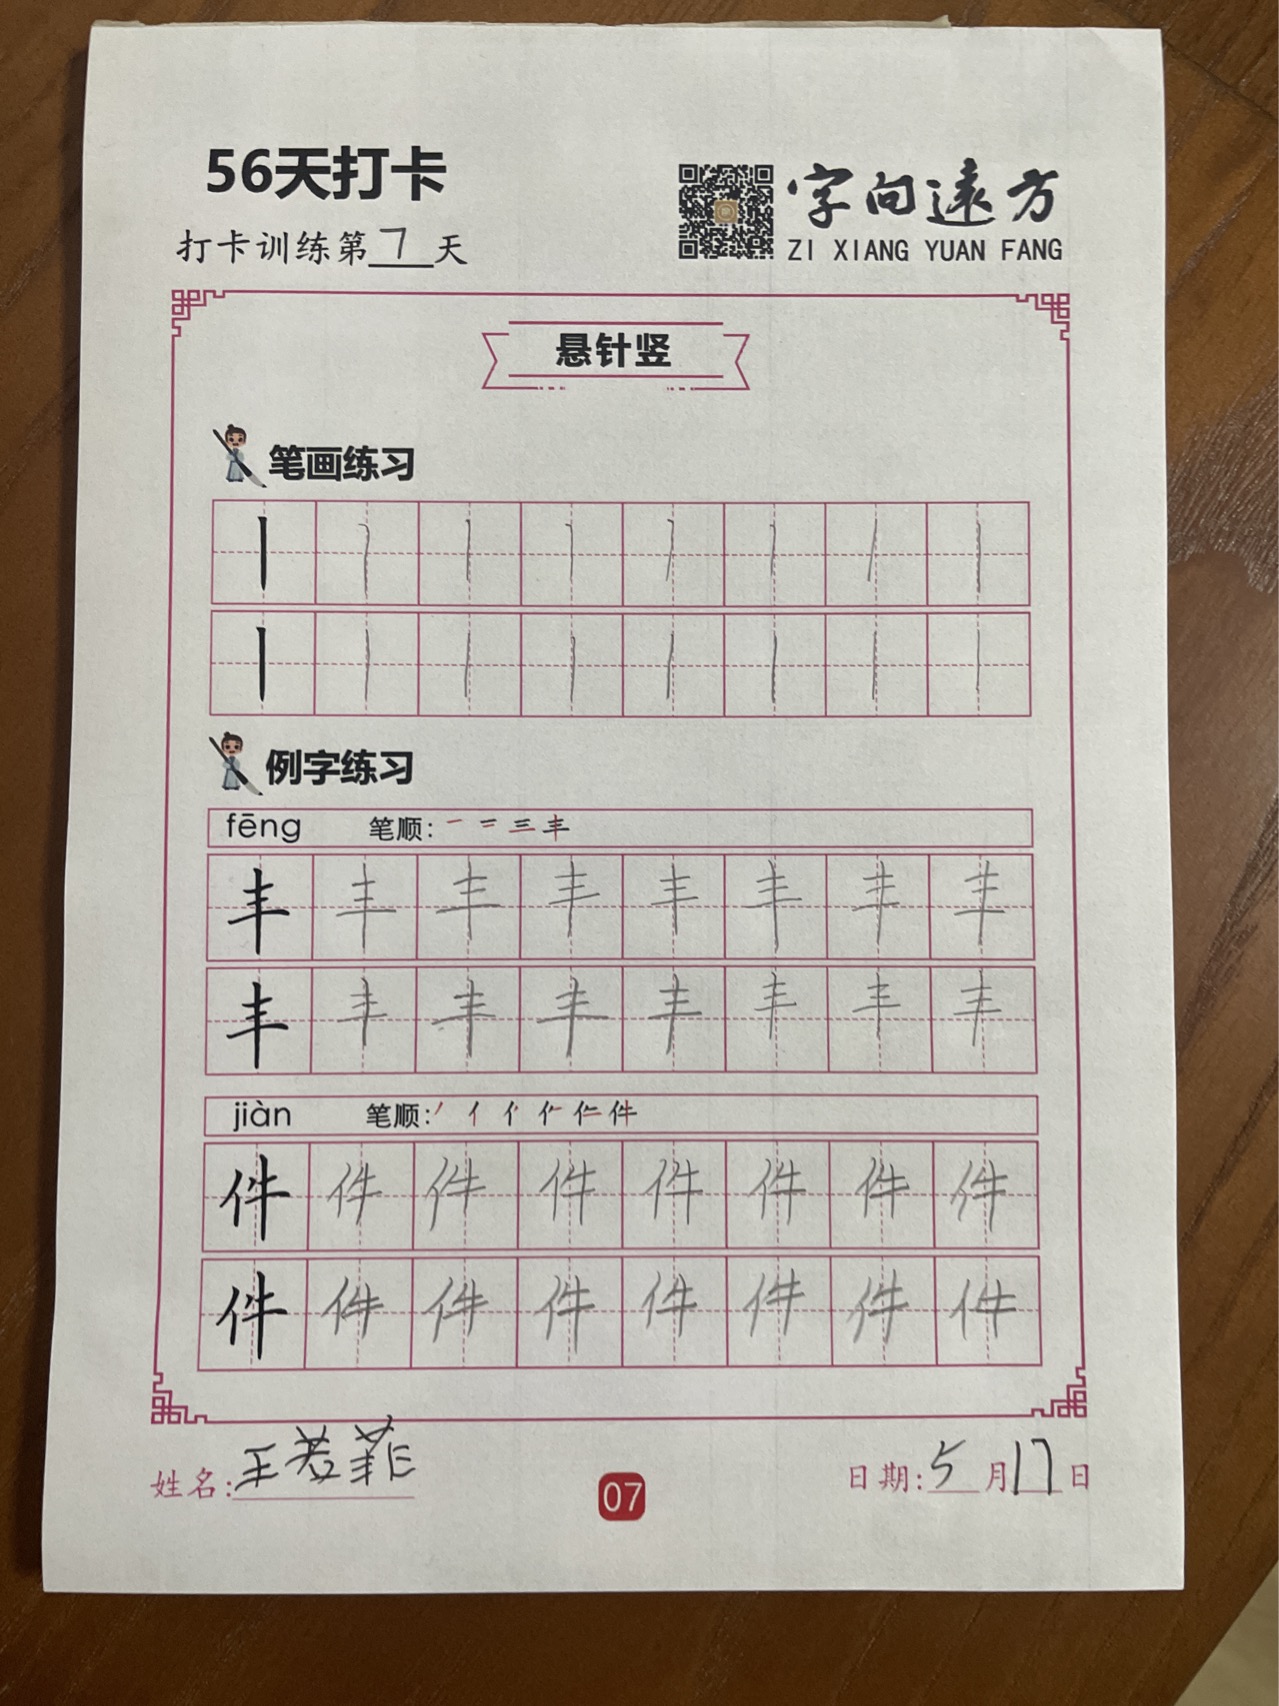 56天打卡
打卡训练第7天
字向遠方
ZI XIANG YUAN FANG
悬针竖
笔画练习
例字练习
fēng 笔顺: 一 二 三 丰
丰 丰 丰 丰 丰 丰 丰 丰
丰 丰 丰 丰 丰 丰 丰 丰
jiàn 笔顺: 丿 亻 件
件 件 件 件 件 件 件 件
件 件 件 件 件 件 件 件
姓名:王若菲
07
日期:5月17日